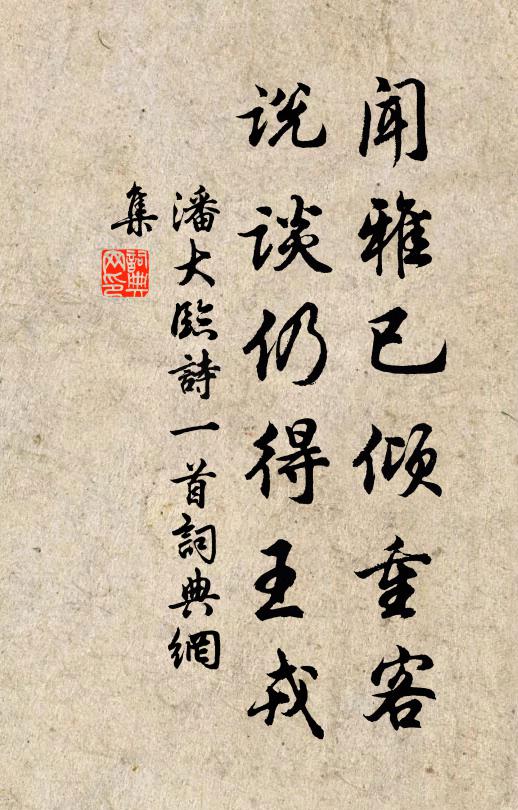 闻雅已倾重客
说谈仍得王戎
潘大臨詩一首詞典網
集
詞典网印